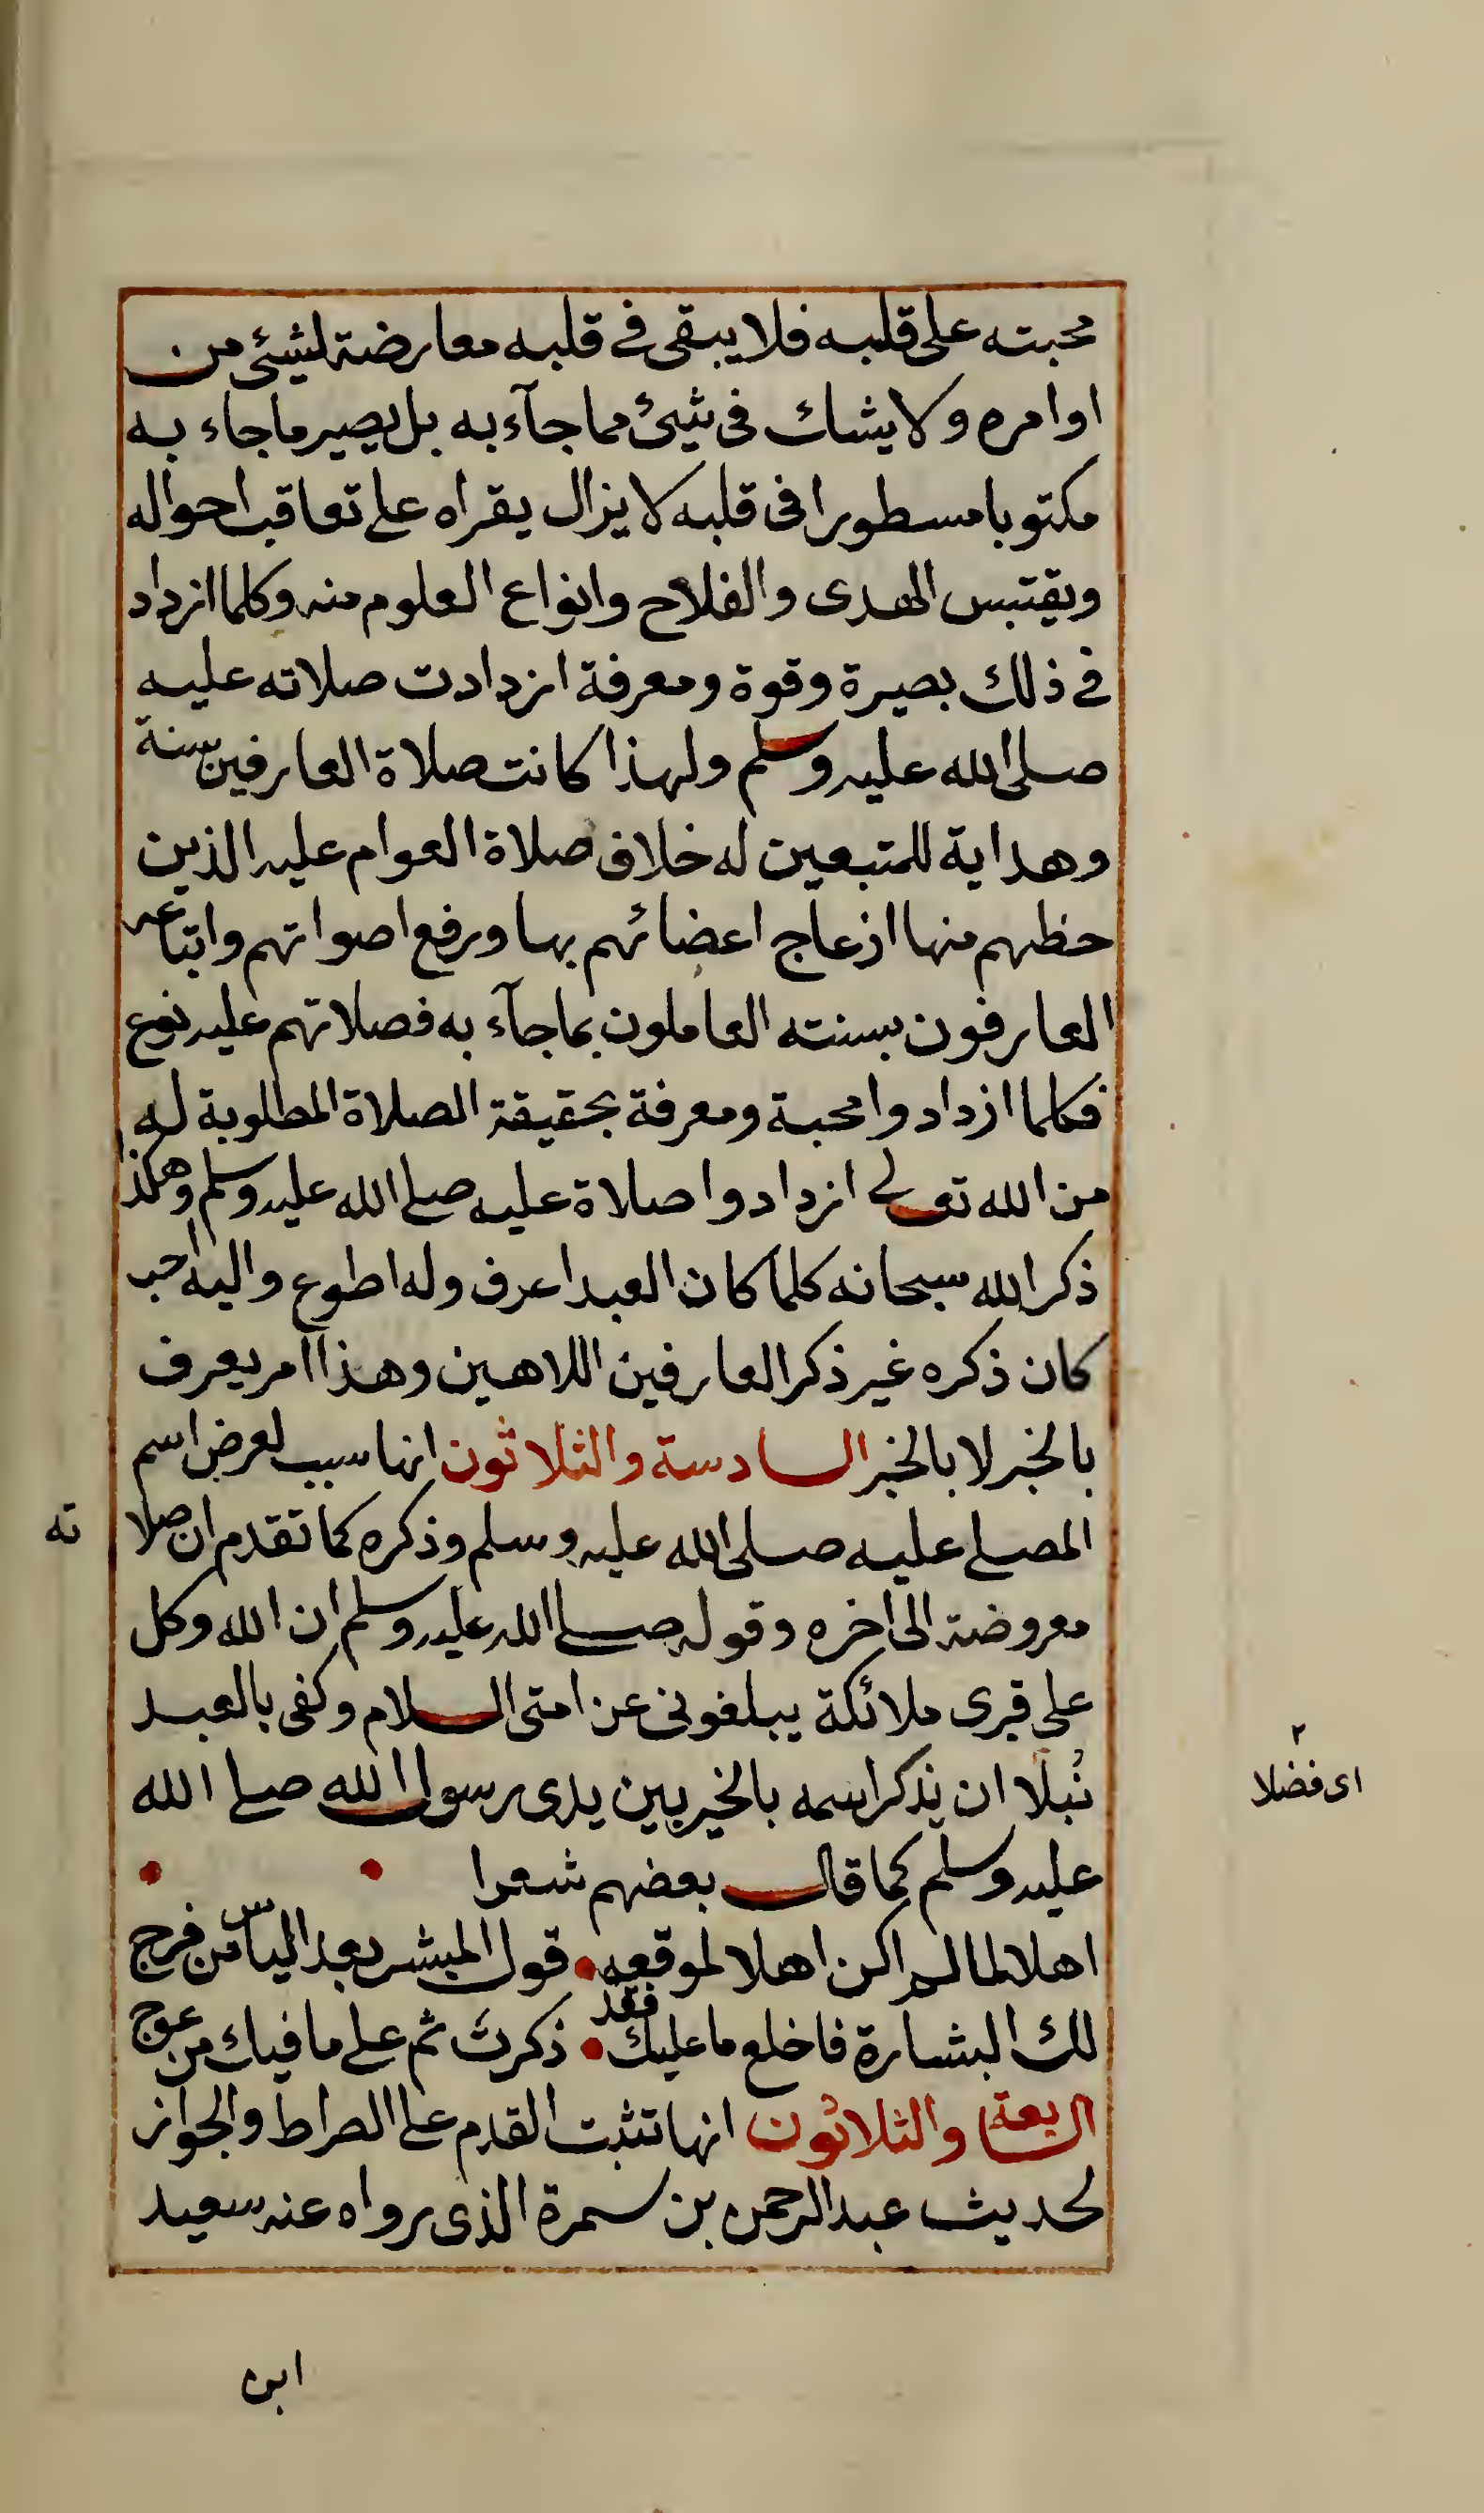 محبته على قلبه فلا يبقى في قلبه معارضة لشيئ من
اوامره ولا يشك فى شيئ مما جآء به بل يصير ما جاء به
مكتوبا مسطورا فى قلبه لا يزال يقراه على تعاقب احواله
ويقتبس الهدى والفلاح وانواع العلوم منه وكلما ازداد
في ذلك بصيرة وقوة ومعرفة ازدادت صلاته عليه
صلى الله عليه وسلم ولهذا كانت صلاة العارفين بسنة
وهداية للمتبعين له خلاف صلاة العوام عليه الذين
حظهم منها ازعاج اعضائهم بها ورفع اصواتهم واتباعه
العارفون بسنته العاملون بما جآء به فصلاتهم عليه نوع
فكلما ازدادوا محبة ومعرفة بحقيقة الصلاة المطلوبة له
من الله تعالى ازدادوا صلاة عليه صلى الله عليه وسلم وهكذا
ذكر الله سبحانه كلما كان العبد اعرف وله اطوع واليه احب
كان ذكره غير ذكر العارفين اللاهين وهذا امر يعرف
بالخبر لا بالخبر السادسة والثلاثون انها سبب لعرض اسم
المصلى عليه صلى الله عليه وسلم وذكره كما تقدم ان صلا ته
معروضة الى اخره وقوله صلى الله عليه وسلم ان الله وكل
على قبرى ملائكة يبلغونى عن امتى السلام وكفى بالعبد
نُبلا ان يذكر اسمه بالخير بين يدى رسول الله صلى الله
٢
اى فضلا
عليه وسلم كما قال بعضهم شعرا
اهلا لما لم اكن اهلا لموقعه • قول المبشر بعد الياس من فرج
لك البشارة فاخلع ما عليك فقد • ذكرت ثم على ما فيك من عوج
السابعة والثلاثون انها تثبت القدم على الصراط والجواز
لحديث عبد الرحمن بن سمرة الذى رواه عنه سعيد
ابن